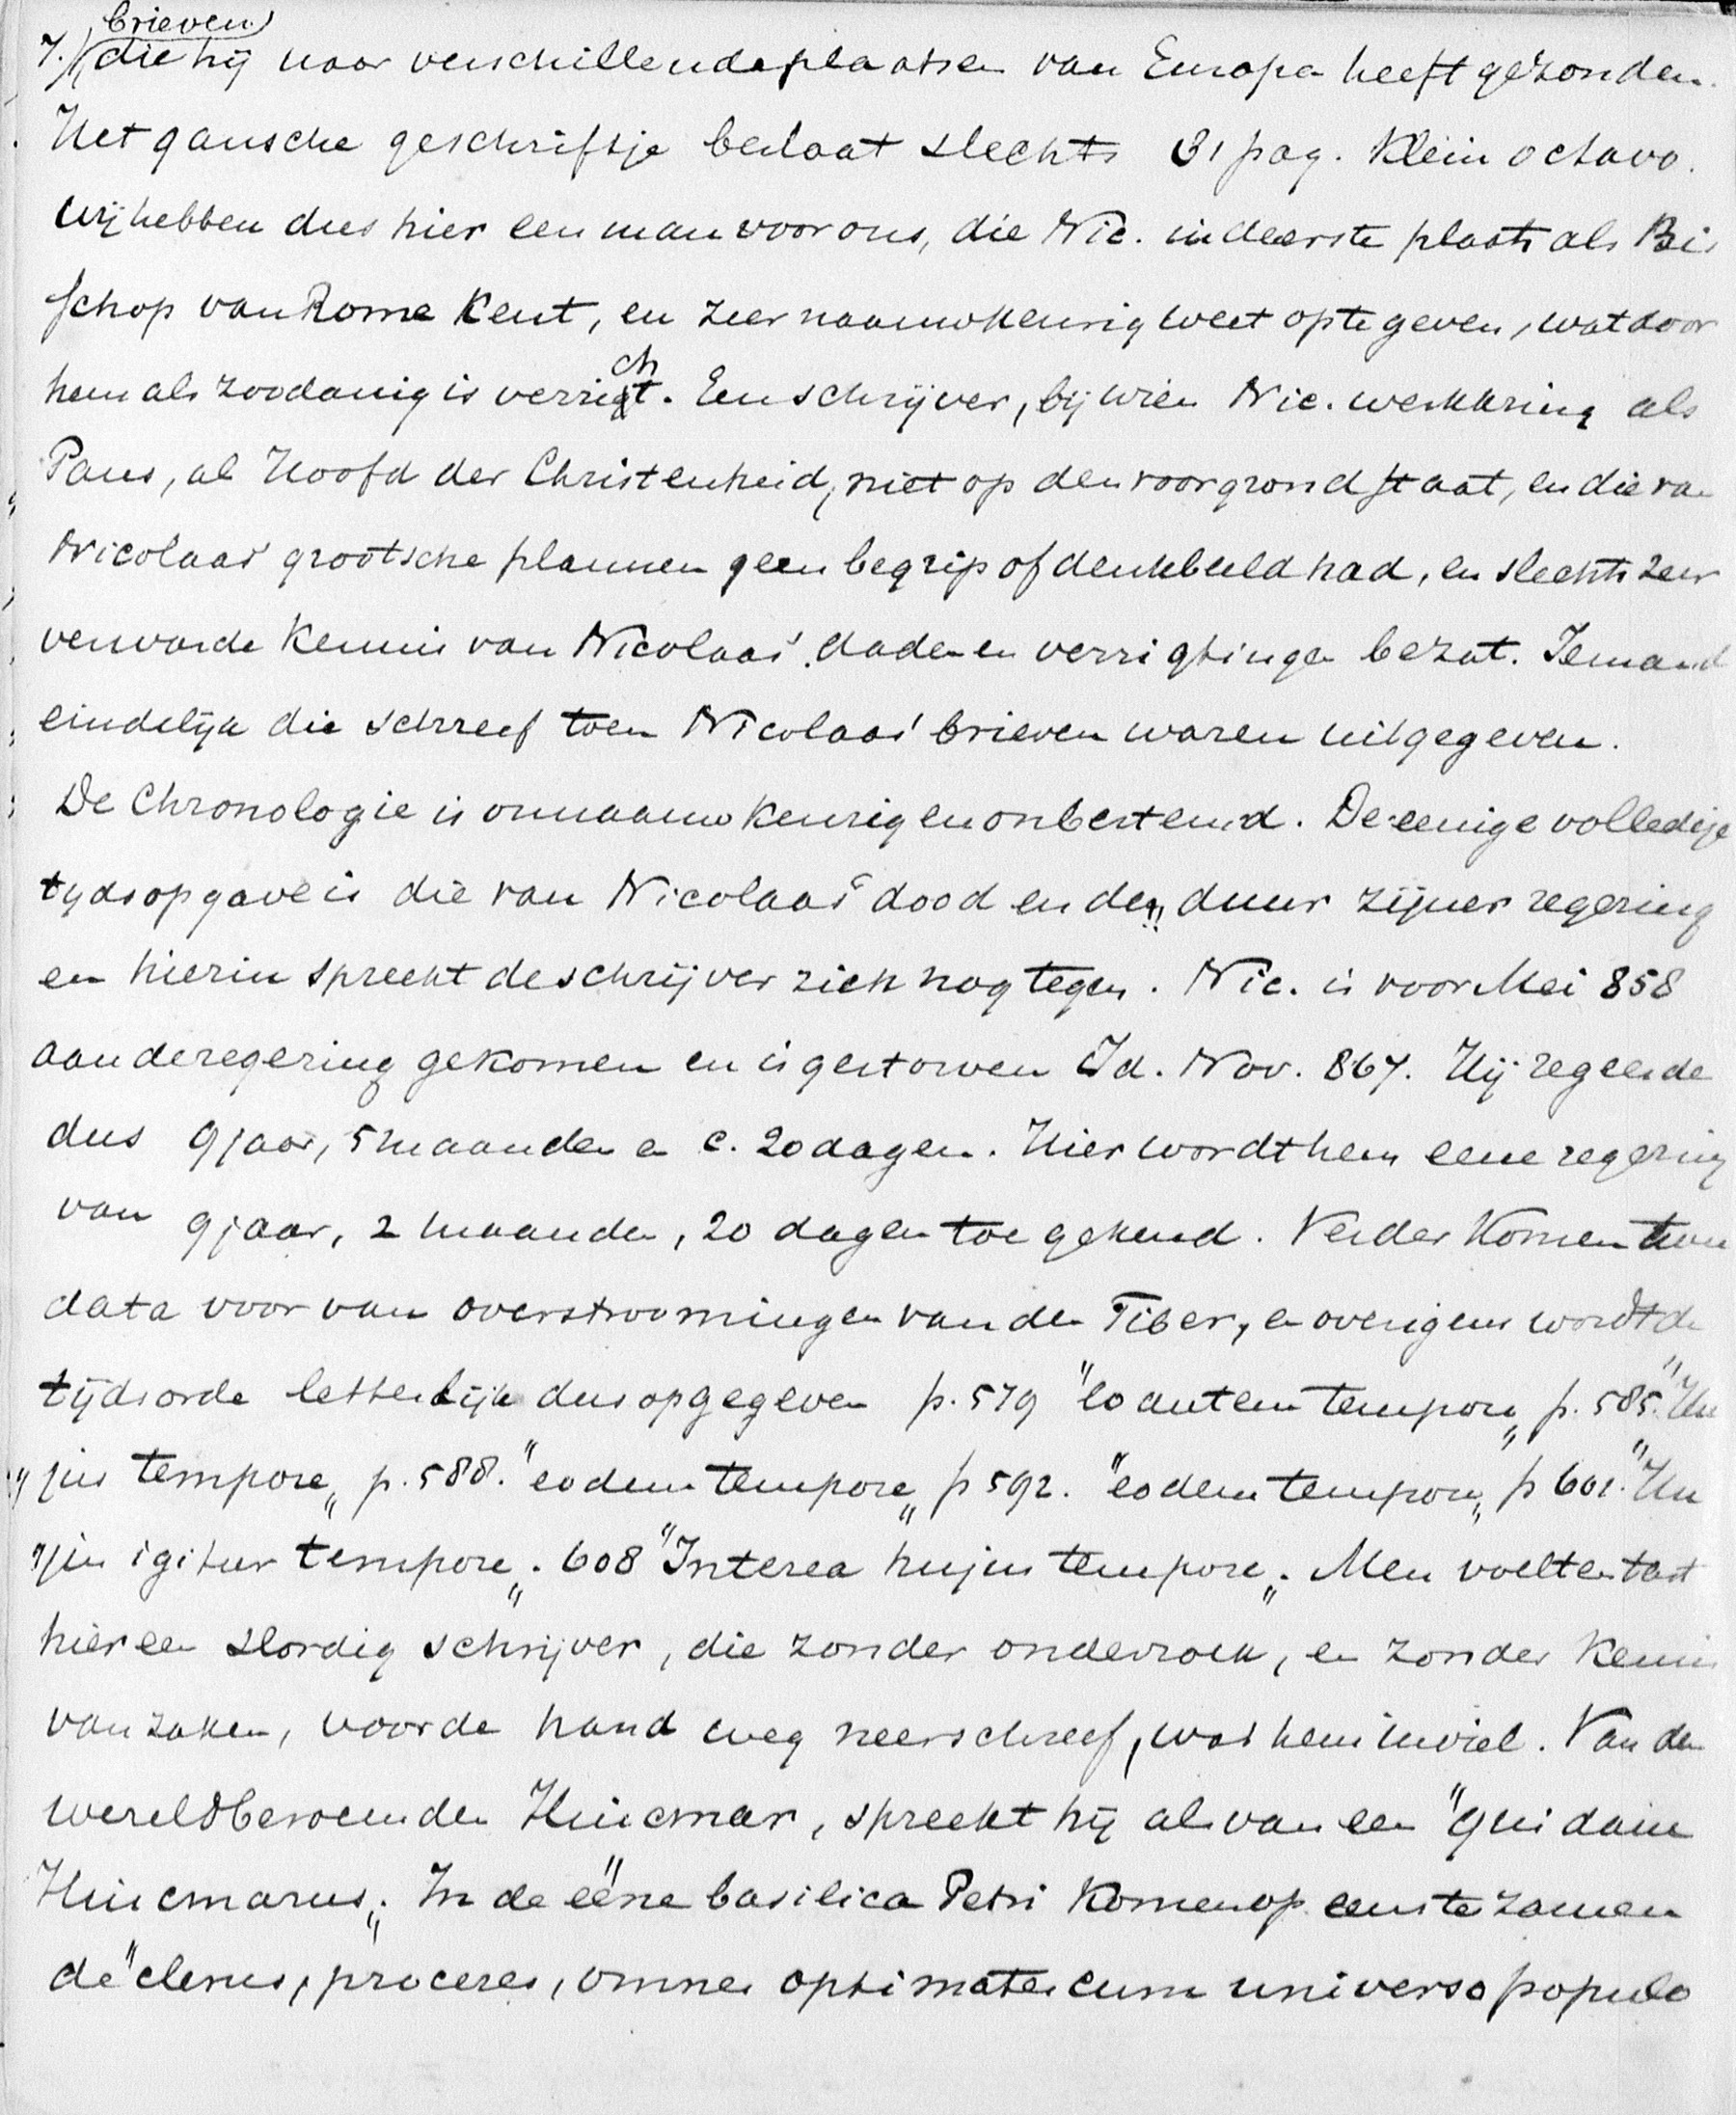 brieven
7. die hij naar verschillende plaatsen van Europa heeft gezonden.
Het gansche geschriftje beslaat slechts 31 pag. klein octavo.
Wij hebben dus hier een man voor ons, die Nic. in de eerste plaats als Bis
schop van Rome kent, en zeer naauwkeurig weet op te geven, wat door
hem als zoodanig is verricht. Een schrijver, bij wien Nic. werkkring als
Paus, al Hoofd der Christenheid, niet op den voorgrond staat, en die van
Nicolaas' grootsche plannen geen begrip of denkbeeld had, en slechts zeer
verwarde kennis van Nicolaas' daden en verrigtingen bezat. Iemand
eindelijk die schreef toen Nicolaas' brieven waren uitgegeven.
De Chronologie is onnaauwkeurig en onbestemd. De eenige volledige
tijdsopgave is die van Nicolaas' dood en den duur zijner regering
en hierin spreekt de schrijver zich nog tegen. Nic. is voor Mei 858
aan de regering gekomen en is gestorven Id. Nov. 867. Hij regeerde
dus 9 jaar, 5 maanden en c. 20 dagen. Hier wordt hem eene regering
van 9 jaar, 2 maanden, 20 dagen toegekend. Verder komen twee
data voor van overstroomingen van den Tiber, en overigens wordt de
tijdsorde letterlijk dus opgegeven p. 579 "eo autem tempore„ p. 585. "Hu
"jus tempore„ p. 588. "eodem tempore„ p 592. "eodem tempore„ p 601. "Hu
"jus igitur tempore„. 608 "Interea hujus tempore„. Men voelt en tast
hier een slordig schrijver, die zonder onderzoek, en zonder kennis
van zaken, voor de hand weg neerschreef, wat hem inviel. Van den
wereldberoemden Hincmar, spreekt hij als van een "quidam
Hincmarus„. In de ééne basilica Petri komen op eens te zamen
de "clerus, proceres, omnes optimates cum universo populo